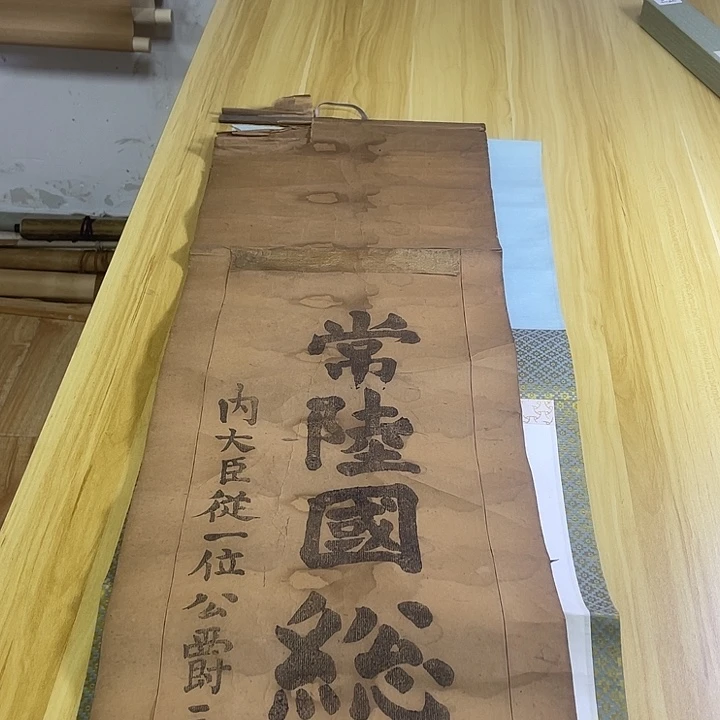 常陸國総
内大臣従一位公爵三